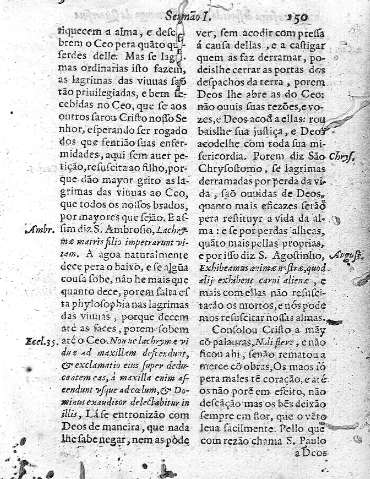 Sermão I. 150
riquecem a alma, e desc
brem o Ceo pera quãto qui
serdes delle. Mas se lagri
mas ordinarias isto fazem,
as lagrimas das viuuas saõ
tão priuilegiadas, e bem re
cebidas no Ceo, que se aos
outros sarou Cristo nosso Se
nhor, esperando ser rogado
dos que sentião suas enfer
midades, aqui sem auer pe
tição, resuscita ao filho, por
que dão mayor grito as la
grimas das viuuas ao Ceo,
que todos os nossos brados,
por mayores que sejão. E as
Ambr. sim diz S. Ambrosio, Lachry
mæ matris filij impetrarunt vi
tam. A agoa naturalmente
dece pera o baixo, e se algũa
cousa sobe, não he mais que
quanto dece, porem falta es
ta phylosophia nas lagrimas
das viuuas, porque decem
até as faces, porem sobem
Eccl.35. até o Ceo. Nonne lachrymæ vi
duæ ad maxillam descendunt,
& exclamatio eius super dedu-
centem eas, à maxilla enim as-
cendunt vsque ad cælum, & Do-
minus exauditor delectabitur in
illis, Lá se entronizão com
Deos de maneira, que nada
lhe sabe negar, nem as pòde
ver, sem acodir com pressa
á causa dellas, e a castigar
quem as faz derramar, po
deislhe cerrar as portas dos
despachos da terra, porem
Deos lhe abre as do Ceo:
não ouuis suas rezões, e vo
zes, e Deos acode a ellas: rou
baislhe sua justiça, e Deos
acodelhe com toda sua mi-
sericordia. Porem diz São Chrys.
Chrysostomo, se lagrimas
derramadas por perda da vi
da, são ouuidas de Deos,
quanto mais eficazes serão
pera restituyr a vida da al-
ma: e se por perdas alheas,
quãto mais pellas proprias,
e por isso diz S. Agostinho, August.
Exhibeamus animæ nostræ, quod
alij exhibent carni alienæ, e
mais com ellas não resusci-
tarão os mortos, e nós pode
mos resuscitar nossas almas.
Consolou Cristo a mãy
cõ palauras, Noli flere, e não
ficou ahi, senão rematou a
merce cõ obras, Os maos só
pera males tẽ coração, e até e
os não porẽ em efeito, não
descãção mas os bẽs deixão
sempre em flor, que o vẽto
leua facilmente. Pello que
com rezão chama S. Paulo
a Deos